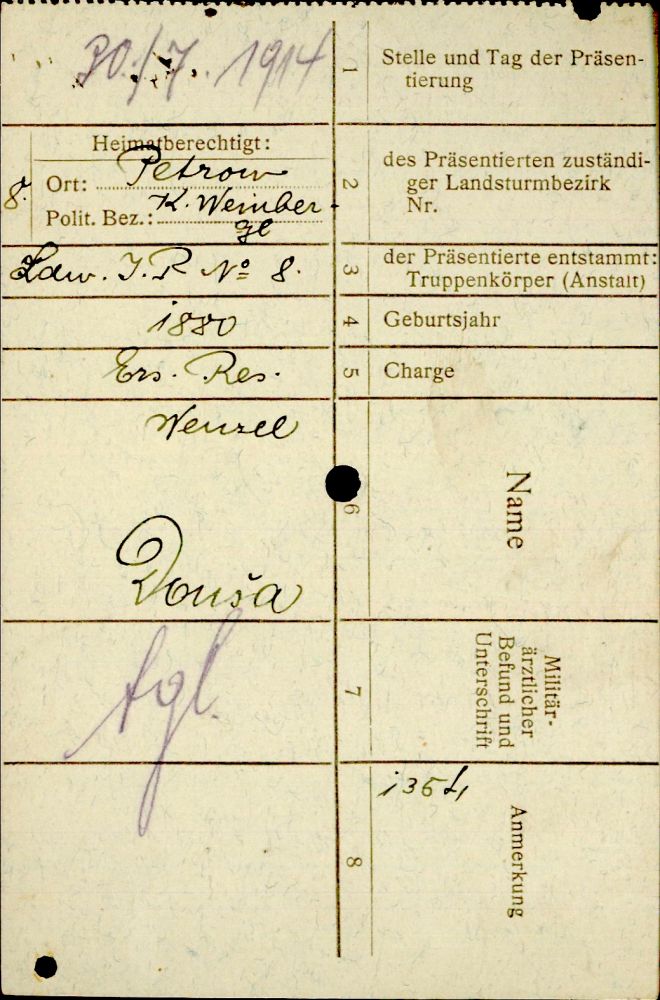 30./7. 1914
1
Stelle und Tag der Präsen-
tierung
Heimatberechtigt:
8.
Ort: Petrow
Polit. Bez.: K. Weinber
ge
2
des Präsentierten zuständi-
ger Landsturmbezirk
Nr.
Ldw. I. R. Nº 8.
3
der Präsentierte entstammt:
Truppenkörper (Anstalt)
1880
4
Geburtsjahr
Ers. Res.
5
Charge
Wenzel
Douša
6
Name
tgl.
7
Militär-
ärztlicher
Befund und
Unterschrift
8
Anmerkung